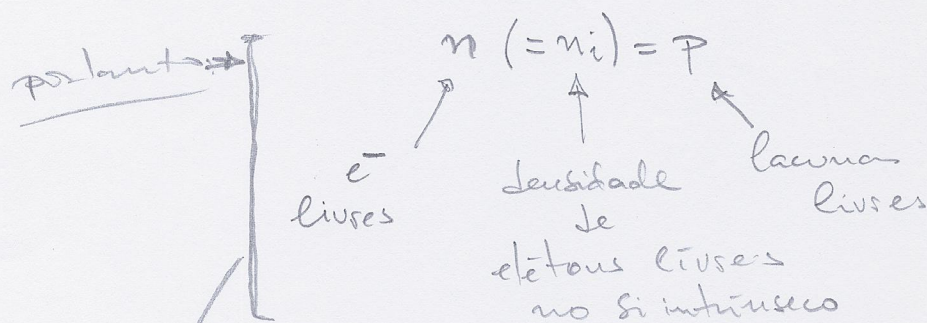 portanto
n (= ni) = p
e⁻
livres
densidade
de
elétons livres
no Si intrínseco
lacunas
livres